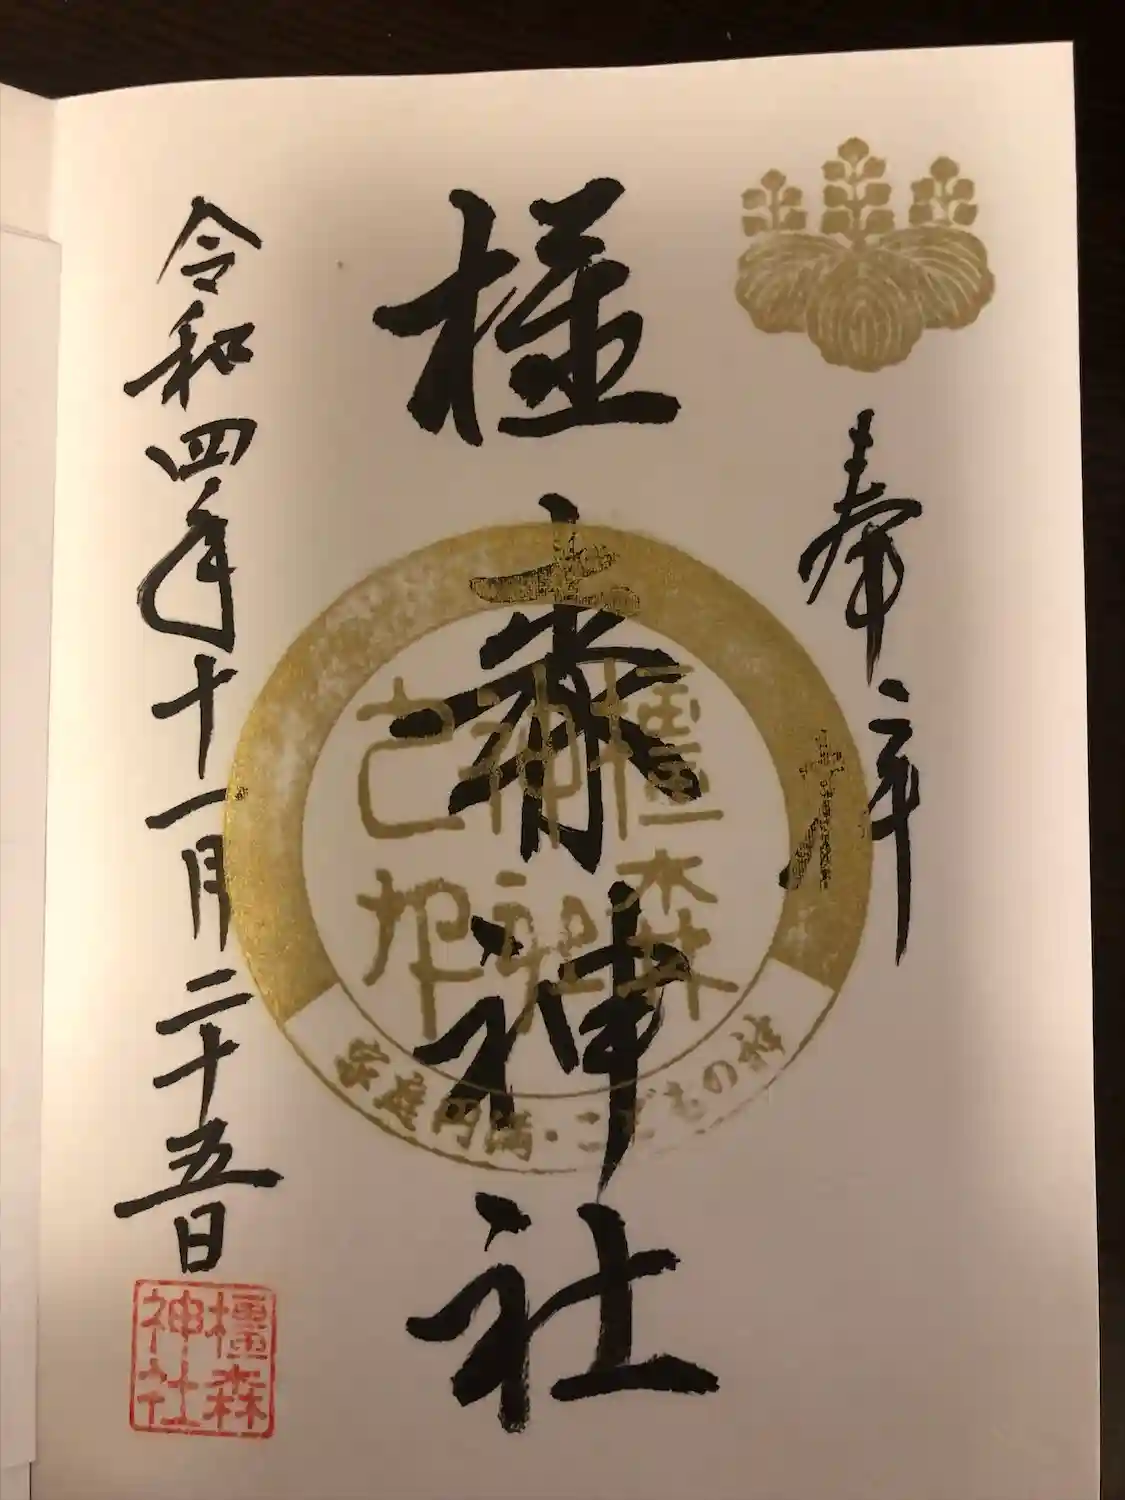 奉拝
橿森神社
橿森
神社
之印
家庭円満・こどもの神
令和四年十一月二十五日
橿森
神社